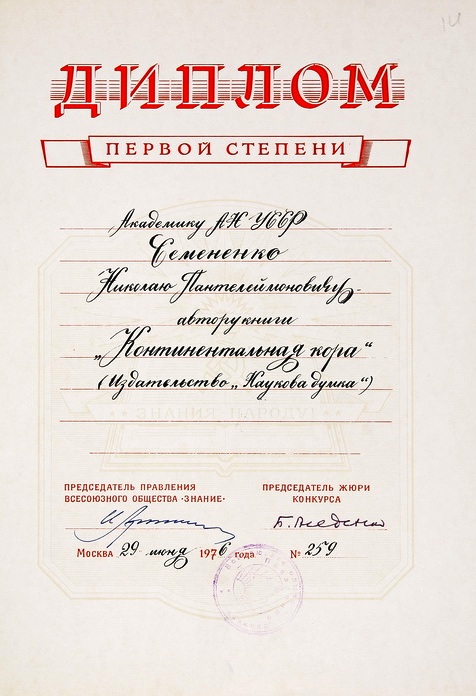 14
ДИПЛОМ
ПЕРВОЙ СТЕПЕНИ
Академику АН УССР
Семененко
Николаю Пантелеймоновичу -
автору книги
„Континентальная кора“
(Издательство „Наукова думка“)
ЗНАНИЯ НАРОДУ
ПРЕДСЕДАТЕЛЬ ПРАВЛЕНИЯ
ВСЕСОЮЗНОГО ОБЩЕСТВА «ЗНАНИЕ»
ПРЕДСЕДАТЕЛЬ ЖЮРИ
КОНКУРСА
Москва 29 июня 1976 года
№ 259